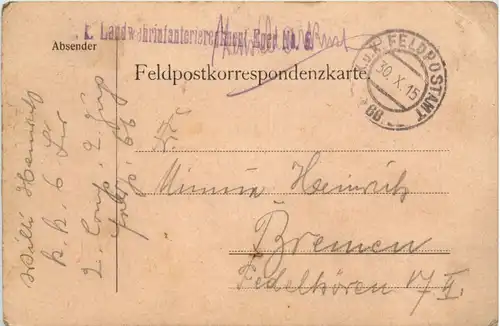 k. Landwehrinfanterieregiment Eger No. 6
Absender
Feldpostkorrespondenzkarte.
K.u.K. FELDPOSTAMT
30. X. 15
66
Willi Heinrich
k. k. 6
2. Comp. 2. Zug
Feldp. 66
Minna Heinrich
Bremen
Fedelhören 17 II.